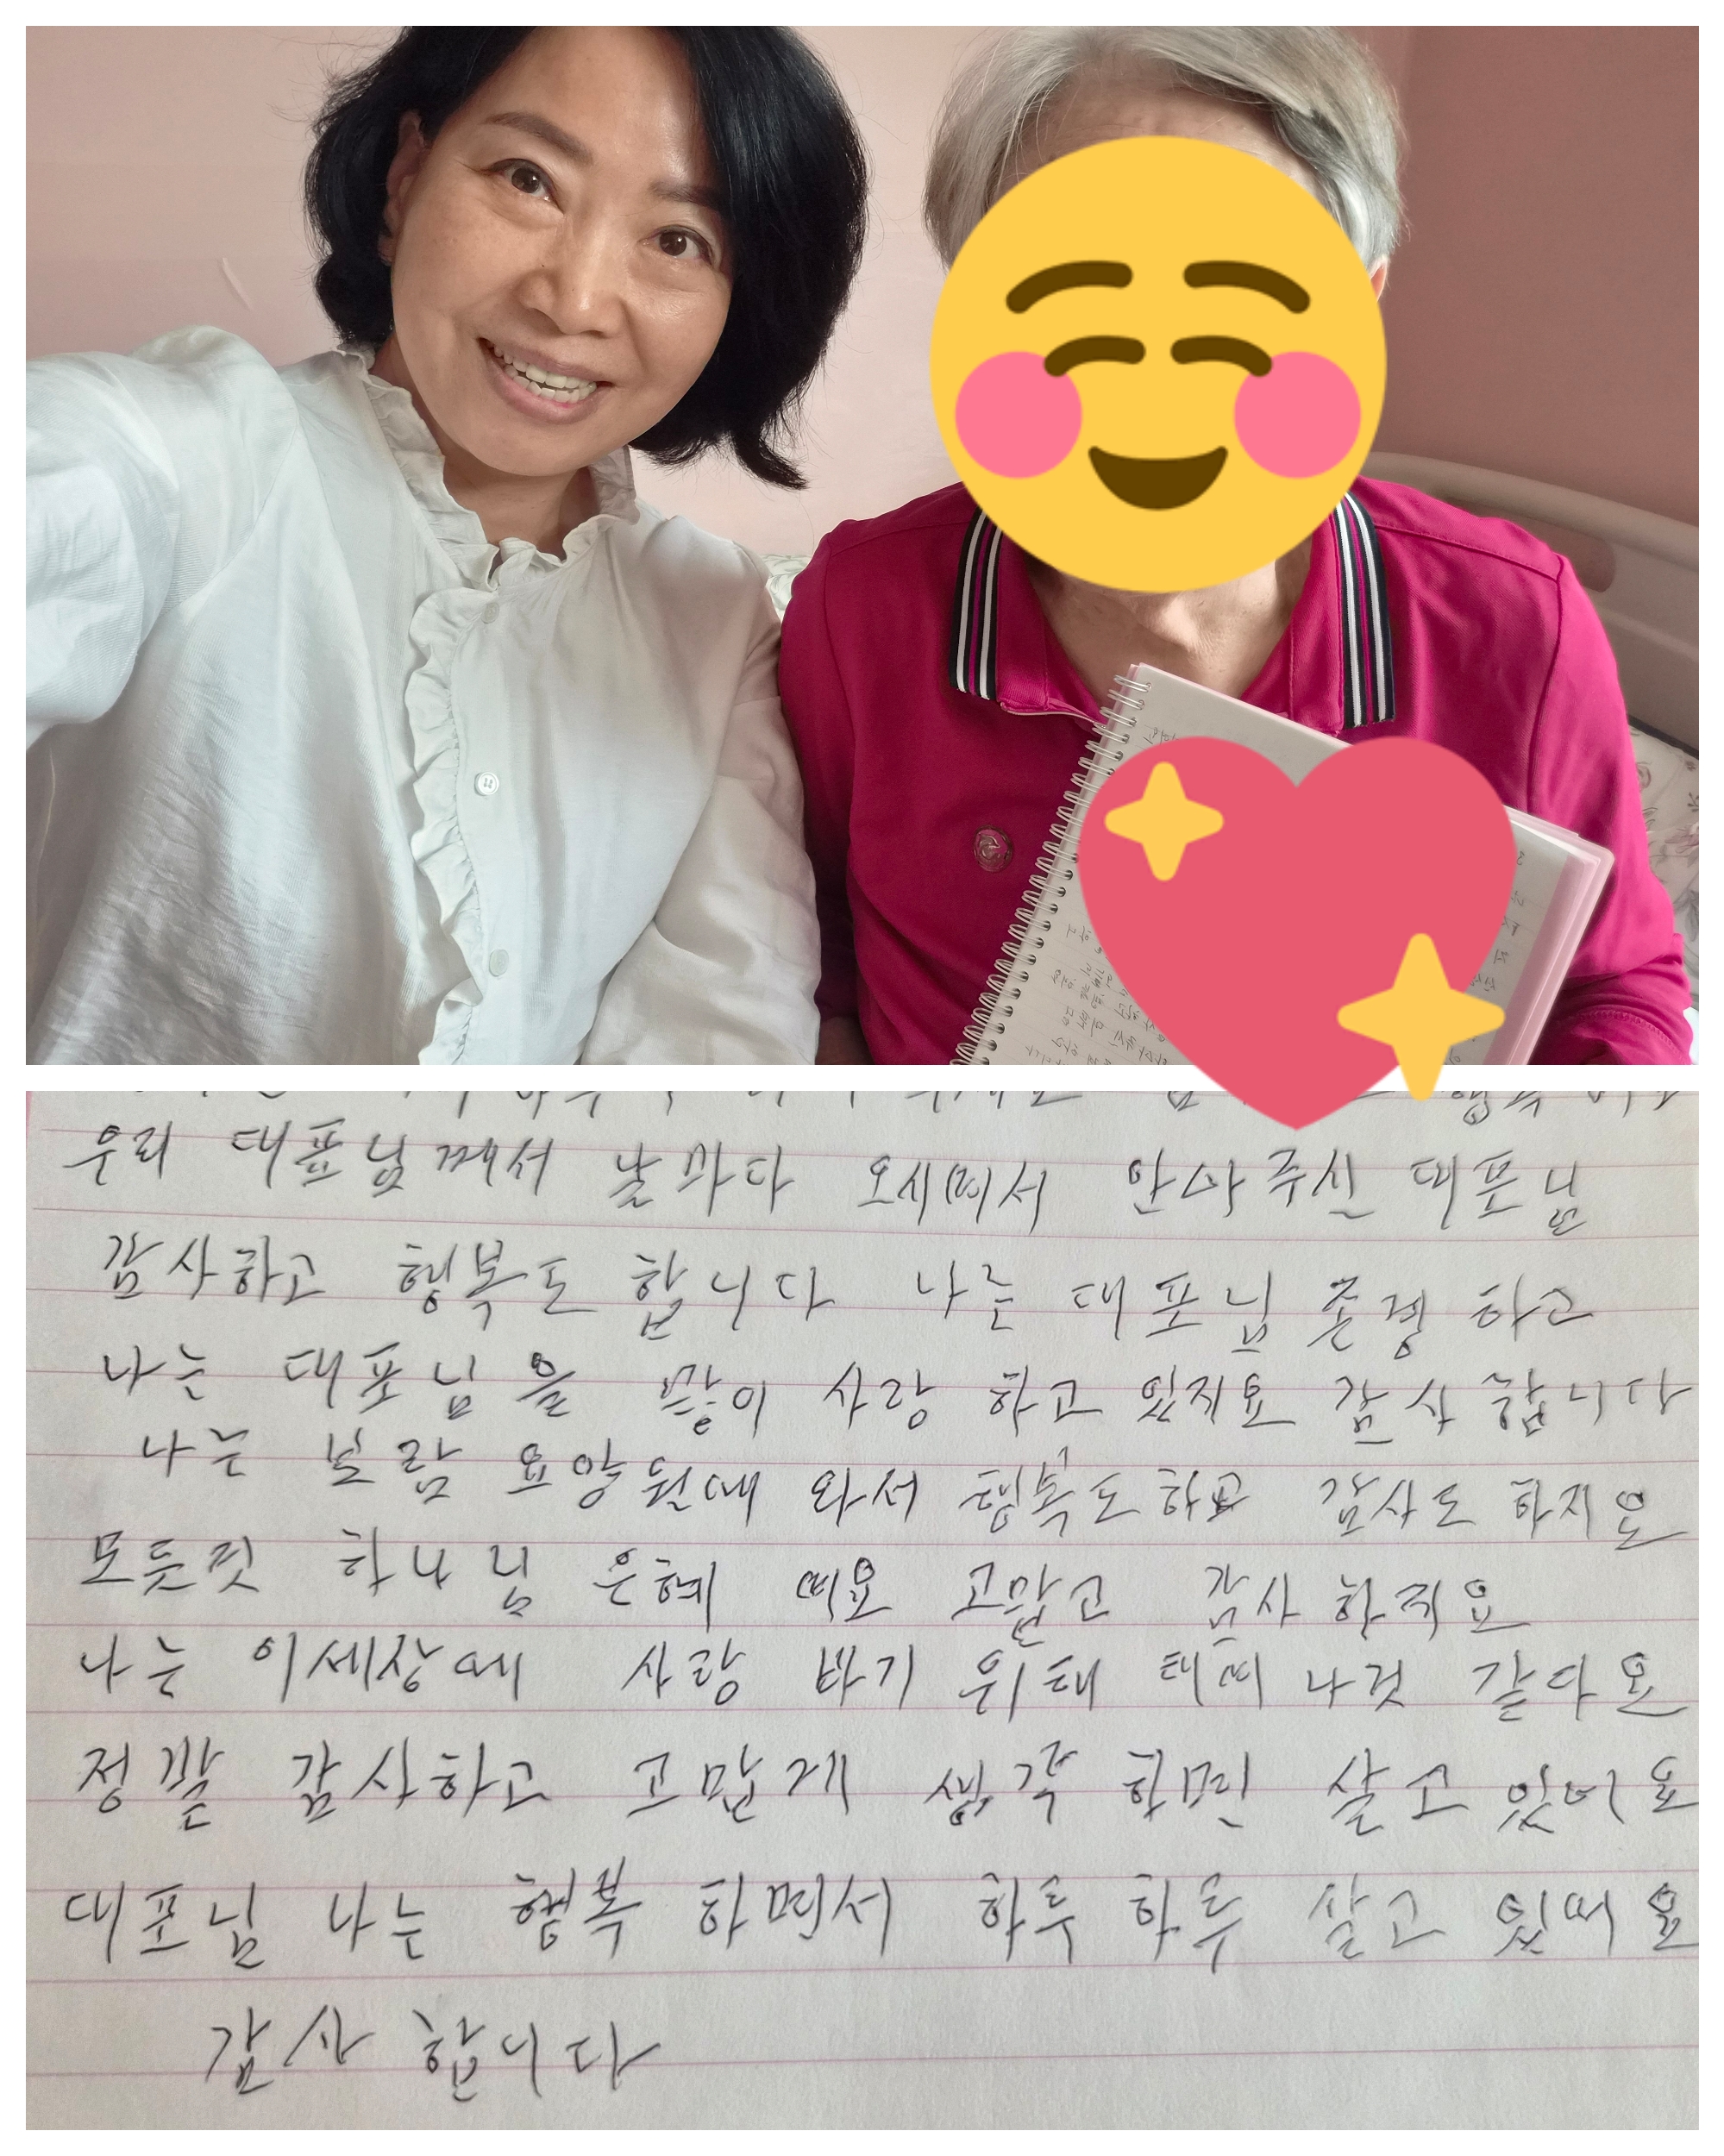 우리 대포님께서 날마다 오시며서 안아주신 대포님
감사하고 행복도 합니다 나는 대포님 존경 하고
나는 대포님을 많이 사랑 하고 있지요 감사 합니다
나는 보람 요양원에 와서 행복도하고 감사도 하지요
모듯것 하나님 은혜 예요 고맙고 감사 하지요
나는 이세상에 사랑 바기 위해 나것 같다요
정말 감사하고 고맙게 생각 하면 살고 있어요
대포님 나는 행복 하면서 하루 하루 살고 있써요
감사 합니다